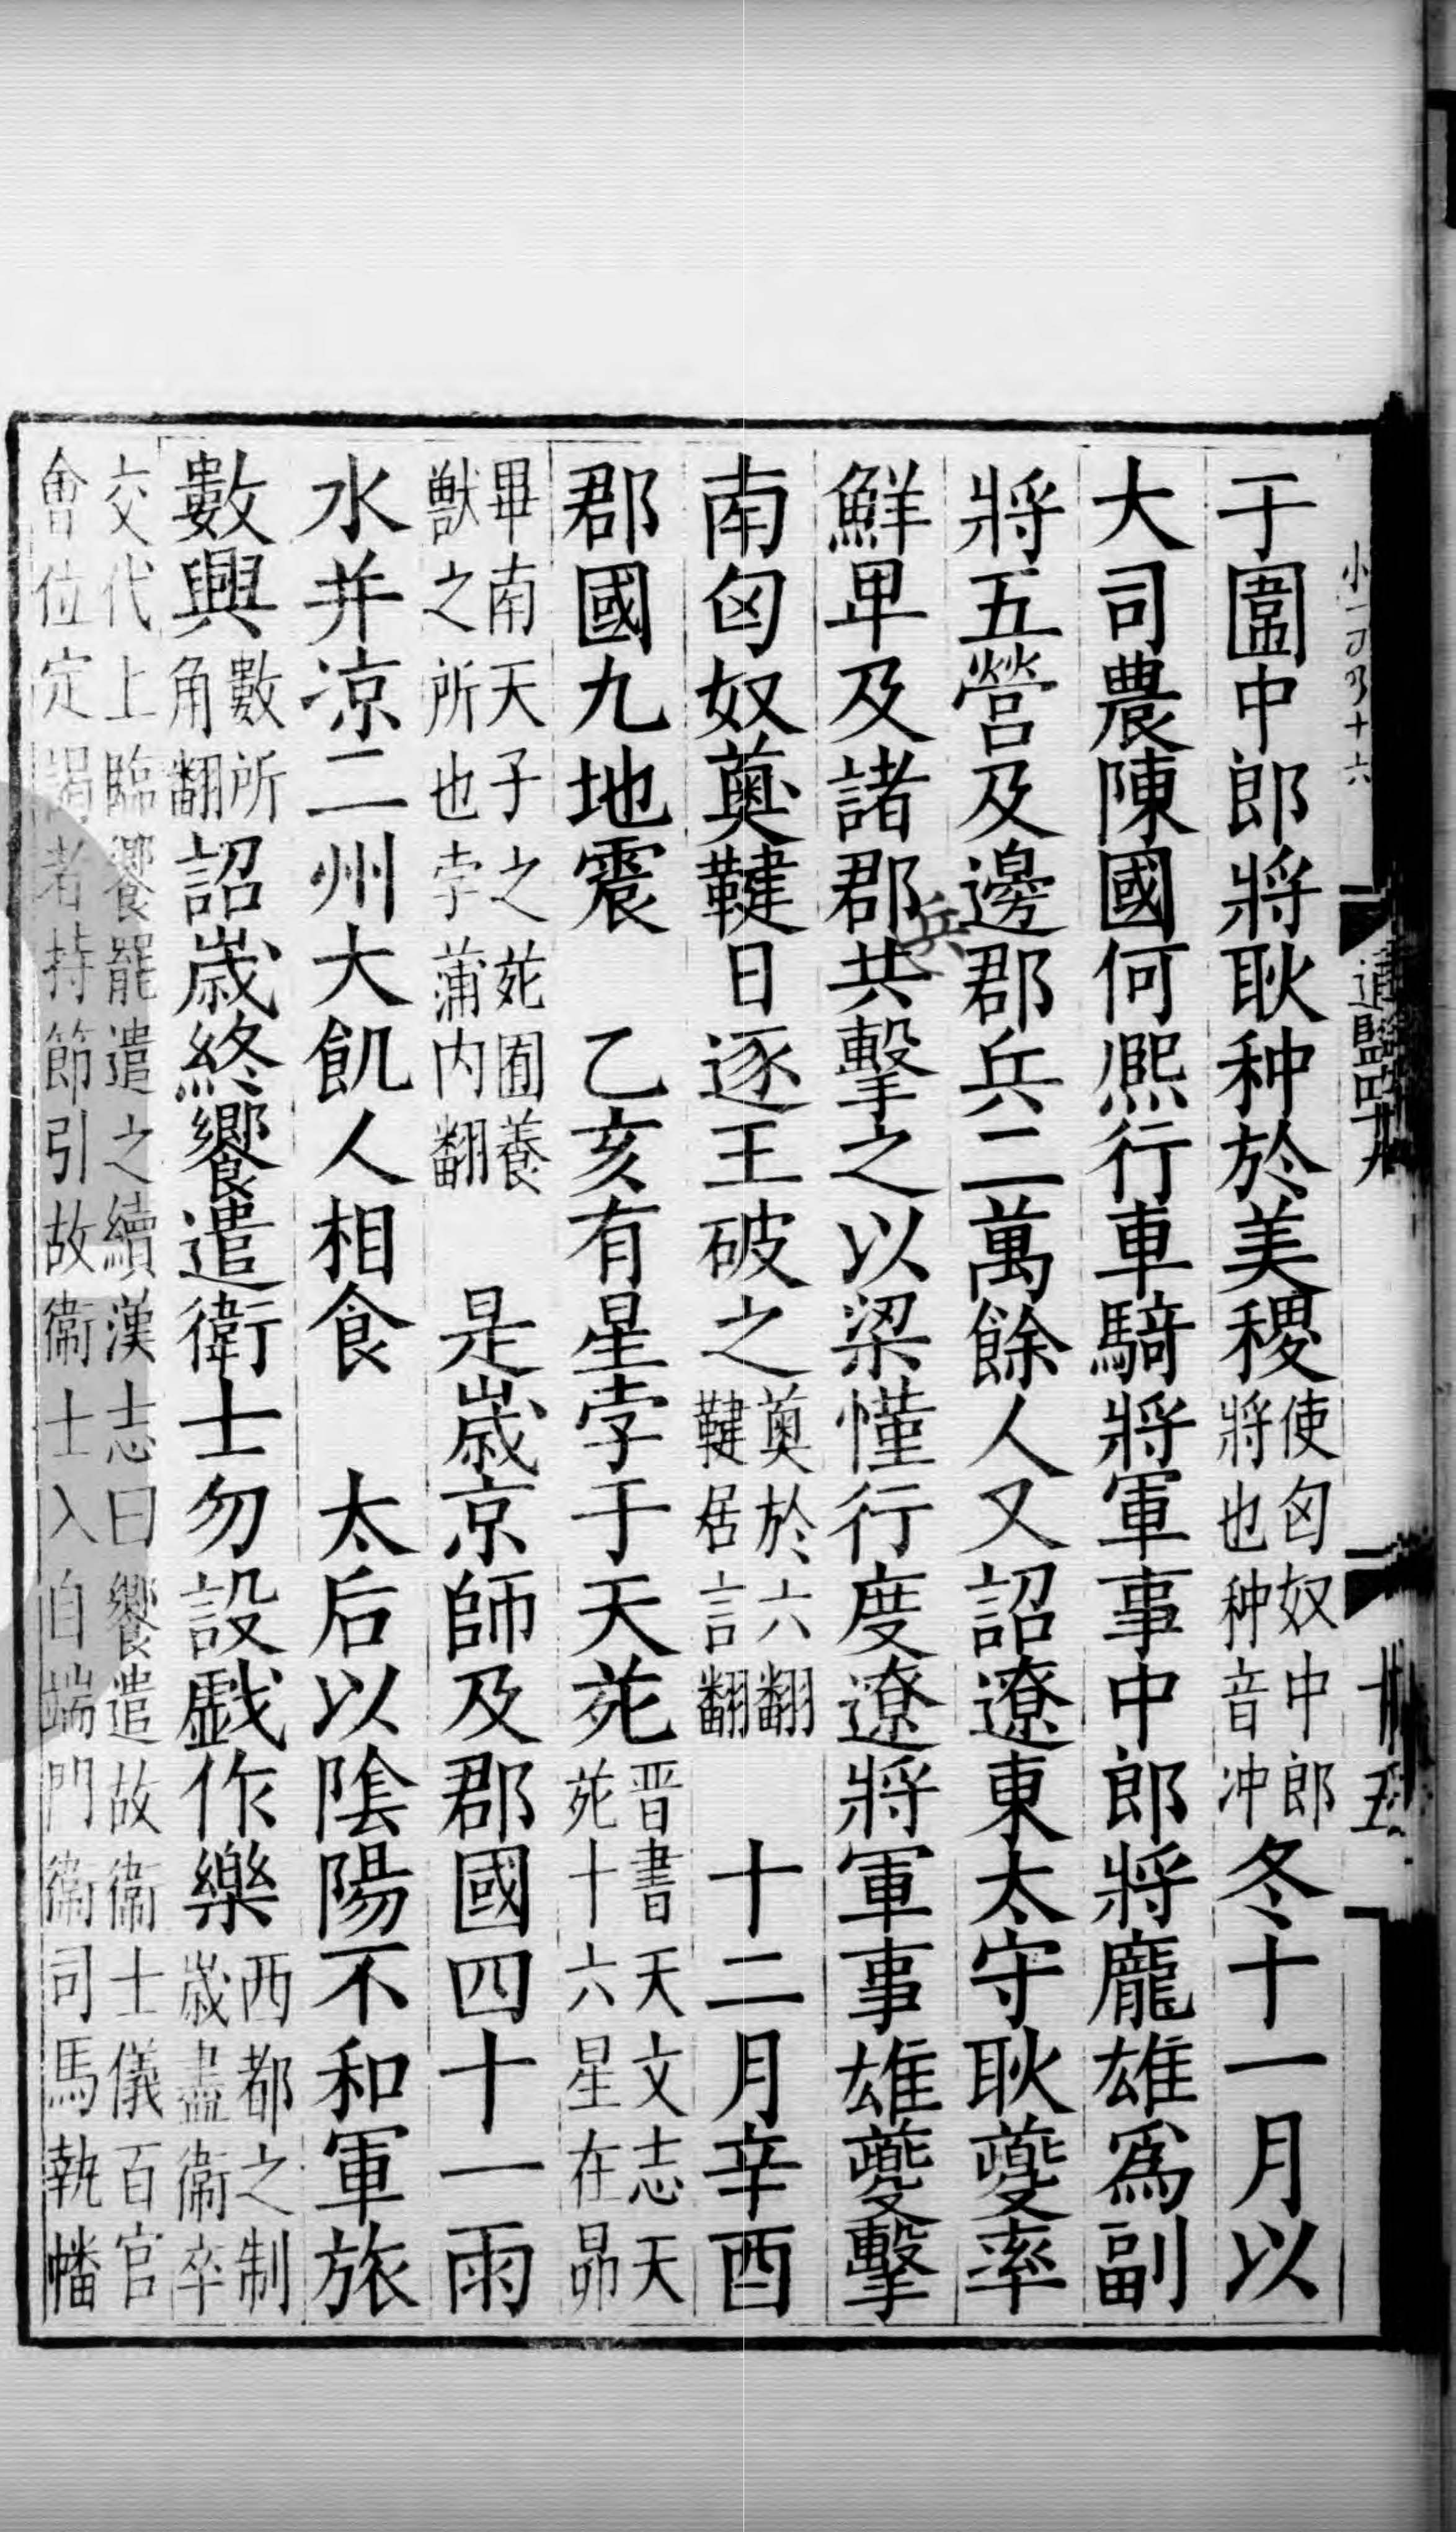 于圍中郎將耿种於美稷使匈奴中郎將也种音冲冬十一月以
大司農陳國何熈行車騎將軍事中郎將龐雄爲副
將五營及邊郡兵二萬餘人又詔遼東太守耿夔率
鮮卑及諸郡兵共擊之以梁慬行度遼將軍事雄夔擊
南匈奴薁鞬日逐王破之薁於六翻鞬居言翻十二月辛酉
郡國九地震乙亥有星孛于天苑晋書天文志天苑十六星在昴
畢南天子之苑囿養獸之所也孛蒲内翻是歲京師及郡國四十一雨
水并凉二州大飢人相食太后以陰陽不和軍旅
數興數所角翻詔歲終饗遣衛士勿設戲作樂西都之制歲盡衛卒
交代上臨饗罷遣之續漢志曰饗遣故衛士儀百官會位定謁者持節引故衛士入自端門衛司馬執幡